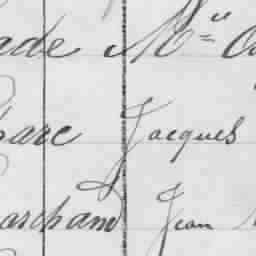 ade Mme
arc Jacques
archand Jean